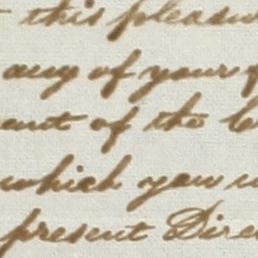 this pleasur
any of your f
ent of the
which you
present Dire